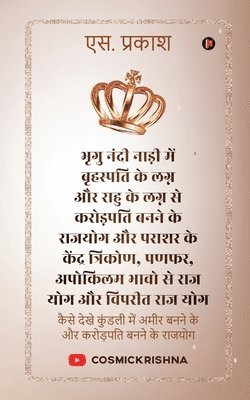 एस. प्रकाश
भृगु नंदी नाड़ी में
बृहस्पति के लग्न
और राहु के लग्न से
करोड़पति बनने के
राजयोग और पराशर के
केंद्र त्रिकोण, पणफर,
अपोकिलम भावो से राज
योग और विपरीत राज योग
कैसे देखे कुंडली में अमीर बनने के
और करोड़पति बनने के राजयोग
COSMICKRISHNA